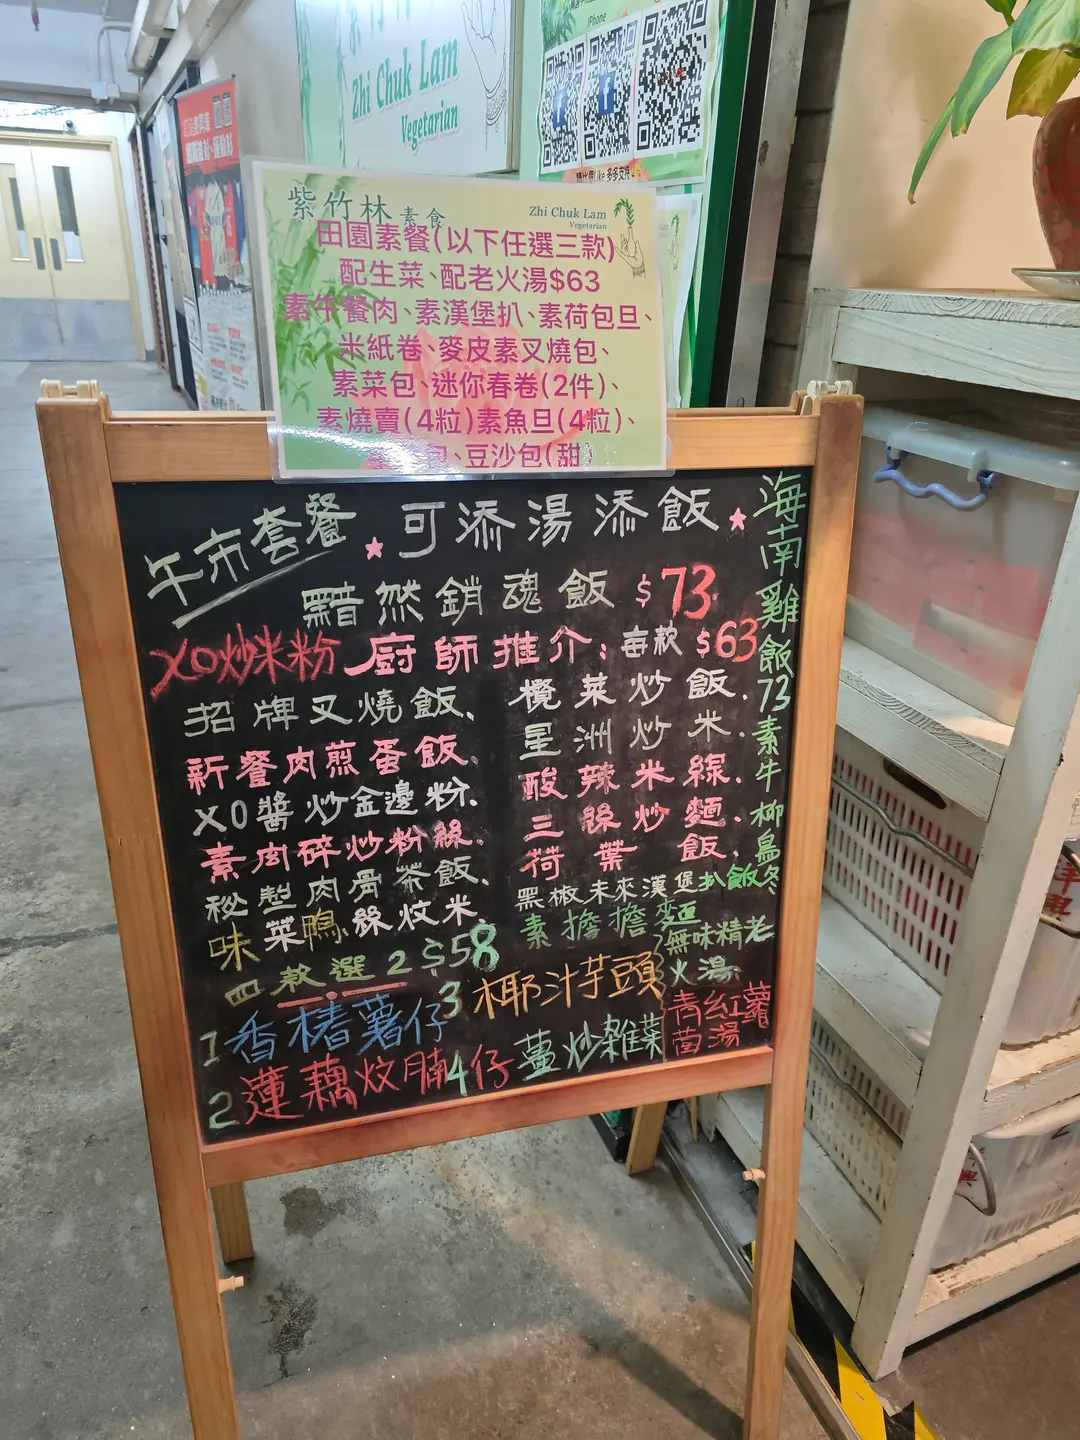 Zhi Chuk Lam
Vegetarian
iPhone
紫竹林素食
Zhi Chuk Lam
Vegetarian
田園素餐(以下任選三款)
配生菜、配老火湯$63
素午餐肉、素漢堡扒、素荷包旦、
米紙卷、麥皮素叉燒包、
素菜包、迷你春卷(2件)、
素燒賣(4粒)素魚旦(4粒)、
包、豆沙包(甜)
午市套餐
★可添湯添飯★
黯然銷魂飯$73
XO炒米粉
廚師推介:每款$63
招牌叉燒飯、
新餐肉煎蛋飯、
XO醬炒金邊粉、
素肉碎炒粉絲、
秘製肉骨茶飯、
味菜鴨絲炆米
欖菜炒飯、
星洲炒米、
酸辣米線、
三絲炒麵、
荷葉飯、
黑椒未來漢堡扒飯
素擔擔麵
海南雞飯73
素牛柳烏冬
四款選2$58
1香椿薯仔
2蓮藕炆腩仔
3椰汁芋頭
4薑炒雜菜
無味精老
火湯:
青紅蘿
蔔湯